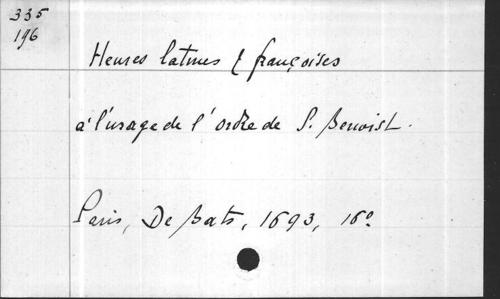 335
196
Heures latines & françoises
à l'usage de l'ordre de S. Benoist.
Paris, De Bats, 1693, 16º